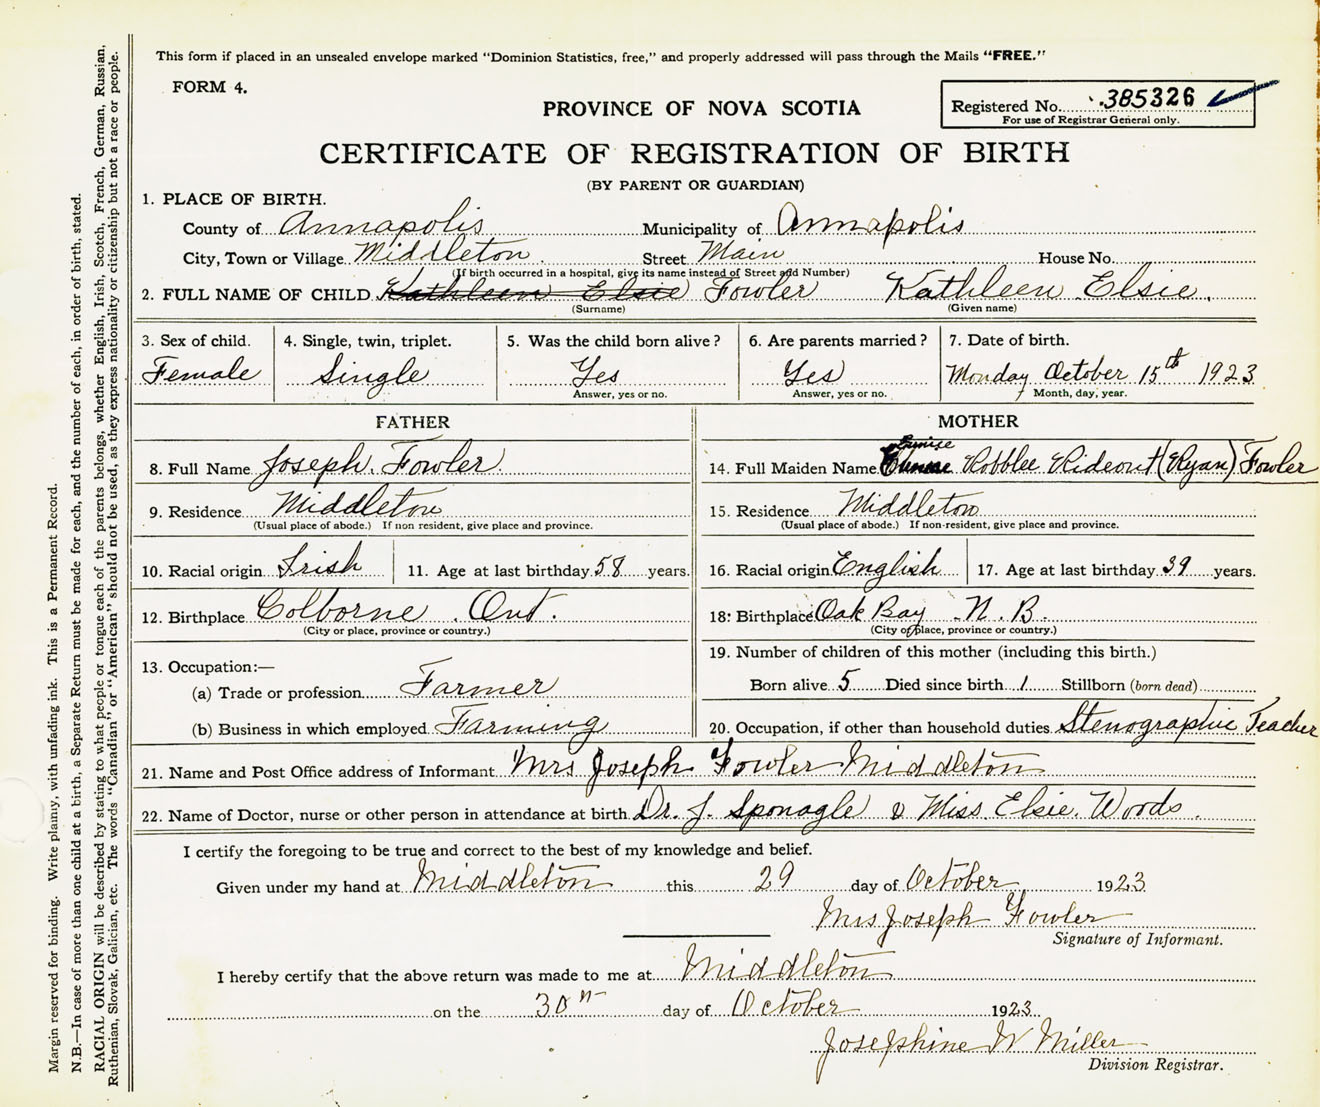 This form if placed in an unsealed envelope marked "Dominion Statistics, free," and properly addressed will pass through the Mails "FREE."
FORM 4.
Registered No. 385326
For use of Registrar General only.
PROVINCE OF NOVA SCOTIA
CERTIFICATE OF REGISTRATION OF BIRTH
(BY PARENT OR GUARDIAN)
1. PLACE OF BIRTH.
County of Annapolis Municipality of Annapolis
City, Town or Village Middleton Street Main House No.
(If birth occurred in a hospital, give its name instead of Street and Number)
2. FULL NAME OF CHILD Kathleen Elsie Fowler Kathleen Elsie.
(Surname) (Given name)
3. Sex of child. 4. Single, twin, triplet. 5. Was the child born alive? 6. Are parents married? 7. Date of birth.
Female Single Yes Yes Monday October 15th 1923
Answer, yes or no. Answer, yes or no. Month, day, year.
FATHER MOTHER
8. Full Name Joseph. Fowler 14. Full Maiden Name Eunise Robblee Rideout (Ryan) Fowler
9. Residence Middleton 15. Residence Middleton
(Usual place of abode.) If non resident, give place and province. (Usual place of abode.) If non-resident, give place and province.
10. Racial origin Irish 11. Age at last birthday 58 years. 16. Racial origin English 17. Age at last birthday 39 years.
12. Birthplace Colborne. Ont. 18: Birthplace Oak Bay N. B.
(City or place, province or country.) (City or place, province or country.)
13. Occupation:— 19. Number of children of this mother (including this birth.)
(a) Trade or profession Farmer Born alive 5 Died since birth 1 Stillborn (born dead)
(b) Business in which employed Farming 20. Occupation, if other than household duties Stenographic Teacher
21. Name and Post Office address of Informant Mrs Joseph Fowler Middleton
22. Name of Doctor, nurse or other person in attendance at birth Dr. J. Sponagle & Miss Elsie. Woods.
I certify the foregoing to be true and correct to the best of my knowledge and belief.
Given under my hand at Middleton this 29 day of October 1923
Mrs Joseph Fowler
Signature of Informant.
I hereby certify that the above return was made to me at Middleton
on the 30th day of October 1923
Josephine W Miller
Division Registrar.
Margin reserved for binding. Write plainly, with unfading ink. This is a Permanent Record.
N.B.—In case of more than one child at a birth, a Separate Return must be made for each, and the number of each, in order of birth, stated.
RACIAL ORIGIN will be described by stating to what people or tongue each of the parents belongs, whether English, Irish, Scotch, French, German, Russian,
Ruthenian, Slovak, Galician, etc. The words "Canadian" or "American" should not be used, as they express nationality or citizenship but not a race or people.